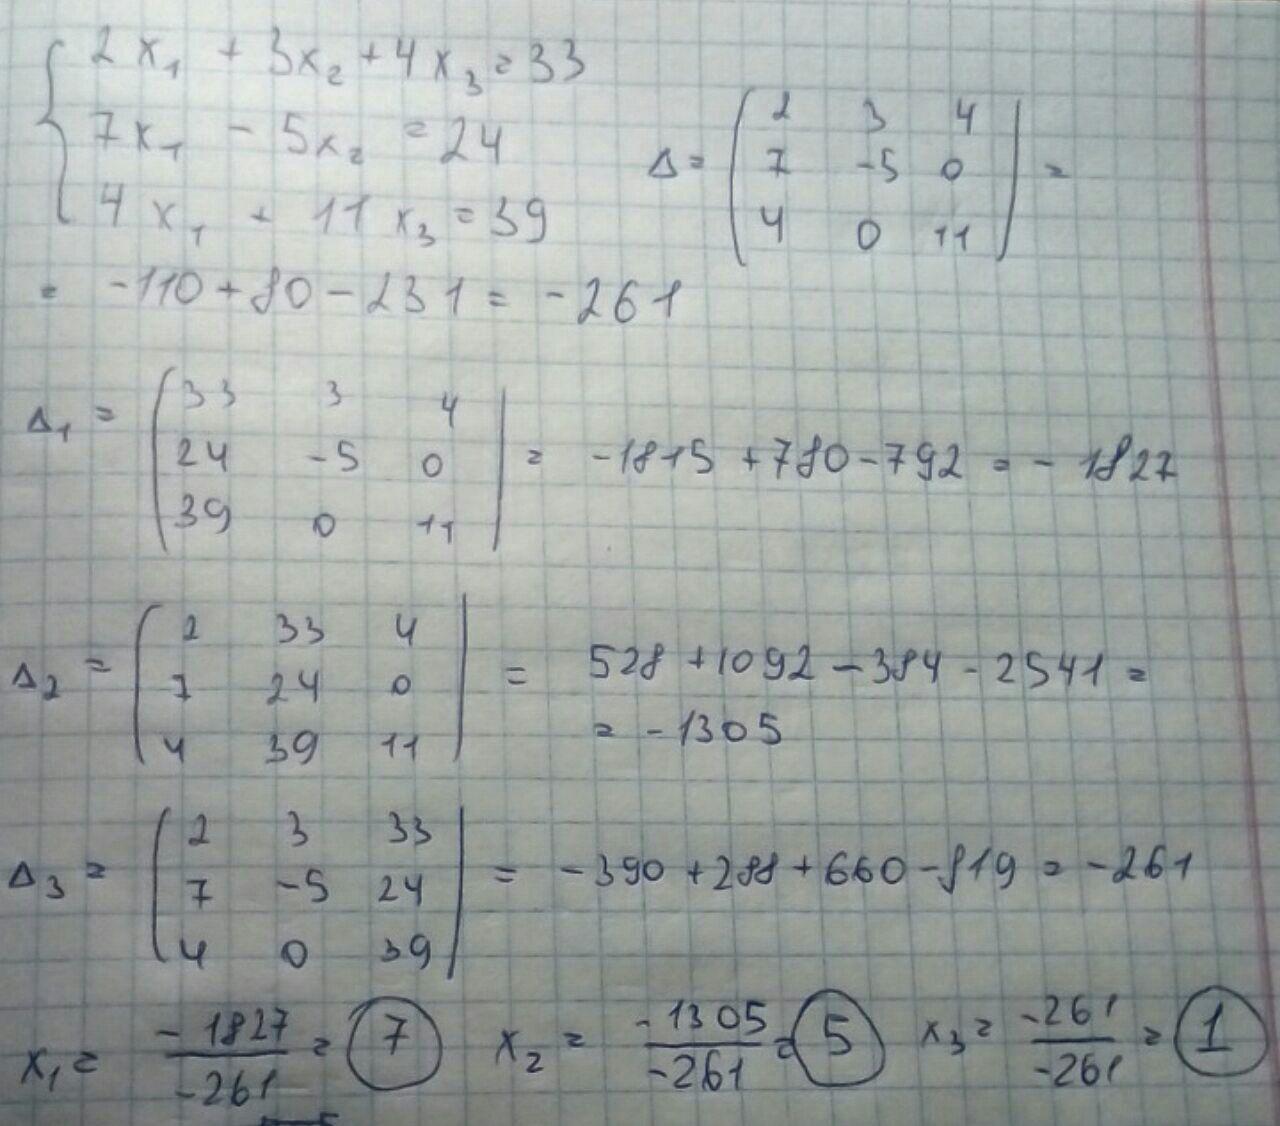 2x₁ + 3x₂ + 4x₃ = 33
7x₁ - 5x₂ = 24
4x₁ + 11x₃ = 39
Δ = | 2 3 4 |
| 7 -5 0 | =
| 4 0 11 |
= -110 + 80 - 231 = -261
Δ₁ = | 33 3 4 |
| 24 -5 0 | = -1815 + 780 - 792 = -1827
| 39 0 11 |
Δ₂ = | 2 33 4 |
| 7 24 0 | = 528 + 1092 - 384 - 2541 =
| 4 39 11 |
= -1305
Δ₃ = | 2 3 33 |
| 7 -5 24 | = -390 + 288 + 660 - 819 = -261
| 4 0 39 |
x₁ = -1827/-261 = 7 x₂ = -1305/-261 = 5 x₃ = -261/-261 = 1